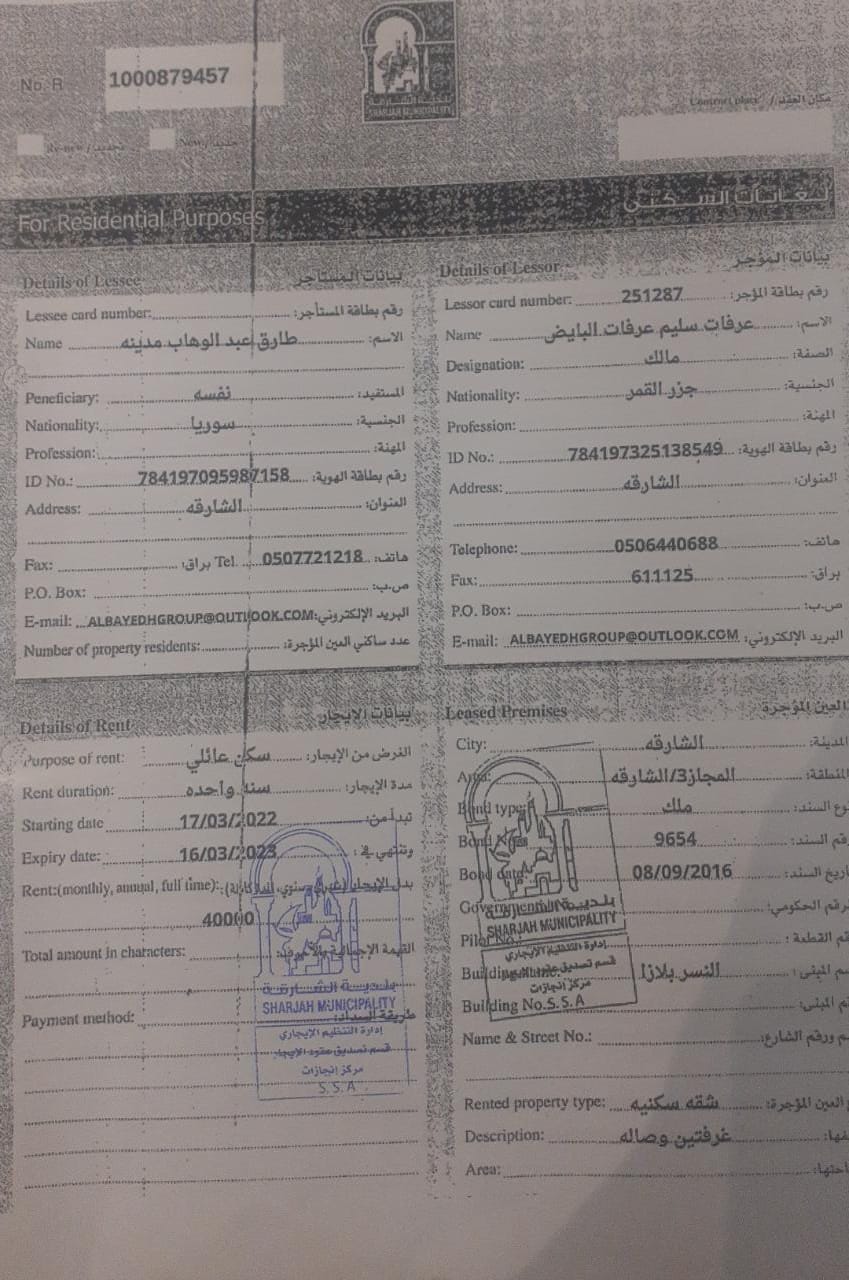 No. R 1000879457
بلدية الشارقة
SHARJAH MUNICIPALITY
Contract place / مكان العقد
Re-new / تجديد New / جديد
For Residential Purposes لغايات السكنى
Details of Lessee بيانات المستأجر
Lessee card number: رقم بطاقة المستأجر:
Name طارق عبد الوهاب مدينه الاسم:
Peneficiary: نفسه المستفيد:
Nationality: سوريا الجنسية:
Profession: المهنة:
ID No.: 784197095987158 رقم بطاقة الهوية:
Address: الشارقه العنوان:
Fax: براق: Tel. 0507721218 هاتف:
P.O. Box: ص.ب:
E-mail: ALBAYEDHGROUP@OUTLOOK.COM البريد الإلكتروني:
Number of property residents: عدد ساكني العين المؤجرة:
Details of Lessor بيانات المؤجر
Lessor card number: 251287 رقم بطاقة المؤجر:
Name عرفات سليم عرفات البايض الاسم:
Designation: مالك الصفة:
Nationality: جزر القمر الجنسية:
Profession: المهنة:
ID No.: 784197325138549 رقم بطاقة الهوية:
Address: الشارقه العنوان:
Telephone: 0506440688 هاتف:
Fax: 611125 براق:
P.O. Box: ص.ب:
E-mail: ALBAYEDHGROUP@OUTLOOK.COM البريد الإلكتروني:
Details of Rent بيانات الايجار
Purpose of rent: سكن عائلي الغرض من الإيجار:
Rent duration: سنه واحده مدة الإيجار:
Starting date 17/03/2022 تبدأ من:
Expiry date: 16/03/2023 وتنتهي في:
Rent:(monthly, annual, full time): بدل الإيجار
40000
Total amount in characters: القيمة الإجمالية بالأحرف:
Payment method: طريقة السداد:
بلدية الشارقة
SHARJAH MUNICIPALITY
إدارة التنظيم الإيجاري
قسم تصديق عقود الايجار
مركز إنجازات
S.S.A
Leased Premises العين المؤجرة
City: الشارقه المدينة:
المجاز3/الشارقه المنطقة:
type ملك نوع السند:
9654 رقم السند:
Bond date 08/09/2016 تاريخ السند:
الرقم الحكومي:
رقم القطعة:
النسر بلازا اسم المبنى:
Building No. رقم المبنى:
بلدية الشارقة
SHARJAH MUNICIPALITY
إدارة التنظيم الإيجاري
قسم تصديق
مركز إنجازات
S.S.A
Name & Street No.: م ورقم الشارع:
Rented property type: شقه سكنيه ع العين المؤجرة:
Description: غرفتين وصاله
Area: